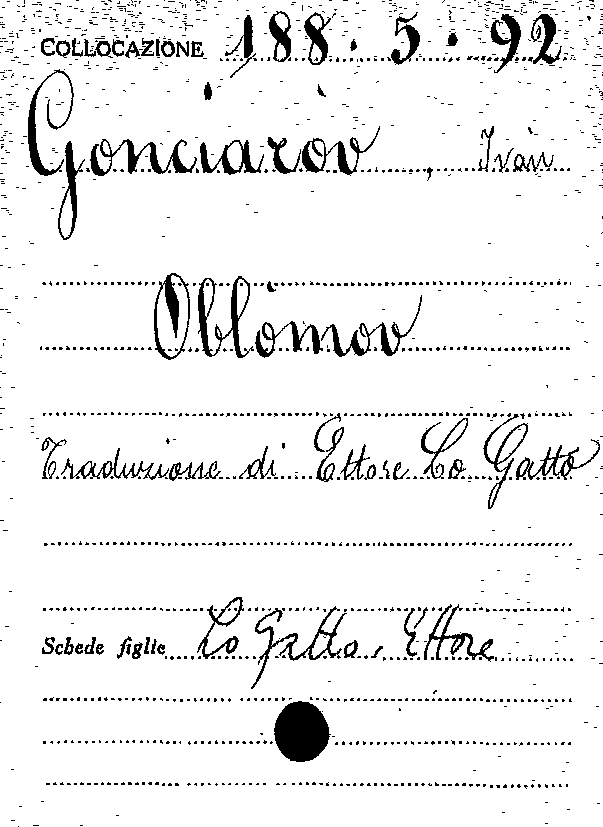 COLLOCAZIONE 188.5.92
Gonciaròv, Ivàn
Oblòmov
Traduzione di Ettore Lo Gatto
Schede figlie Lo Gatto, Ettore